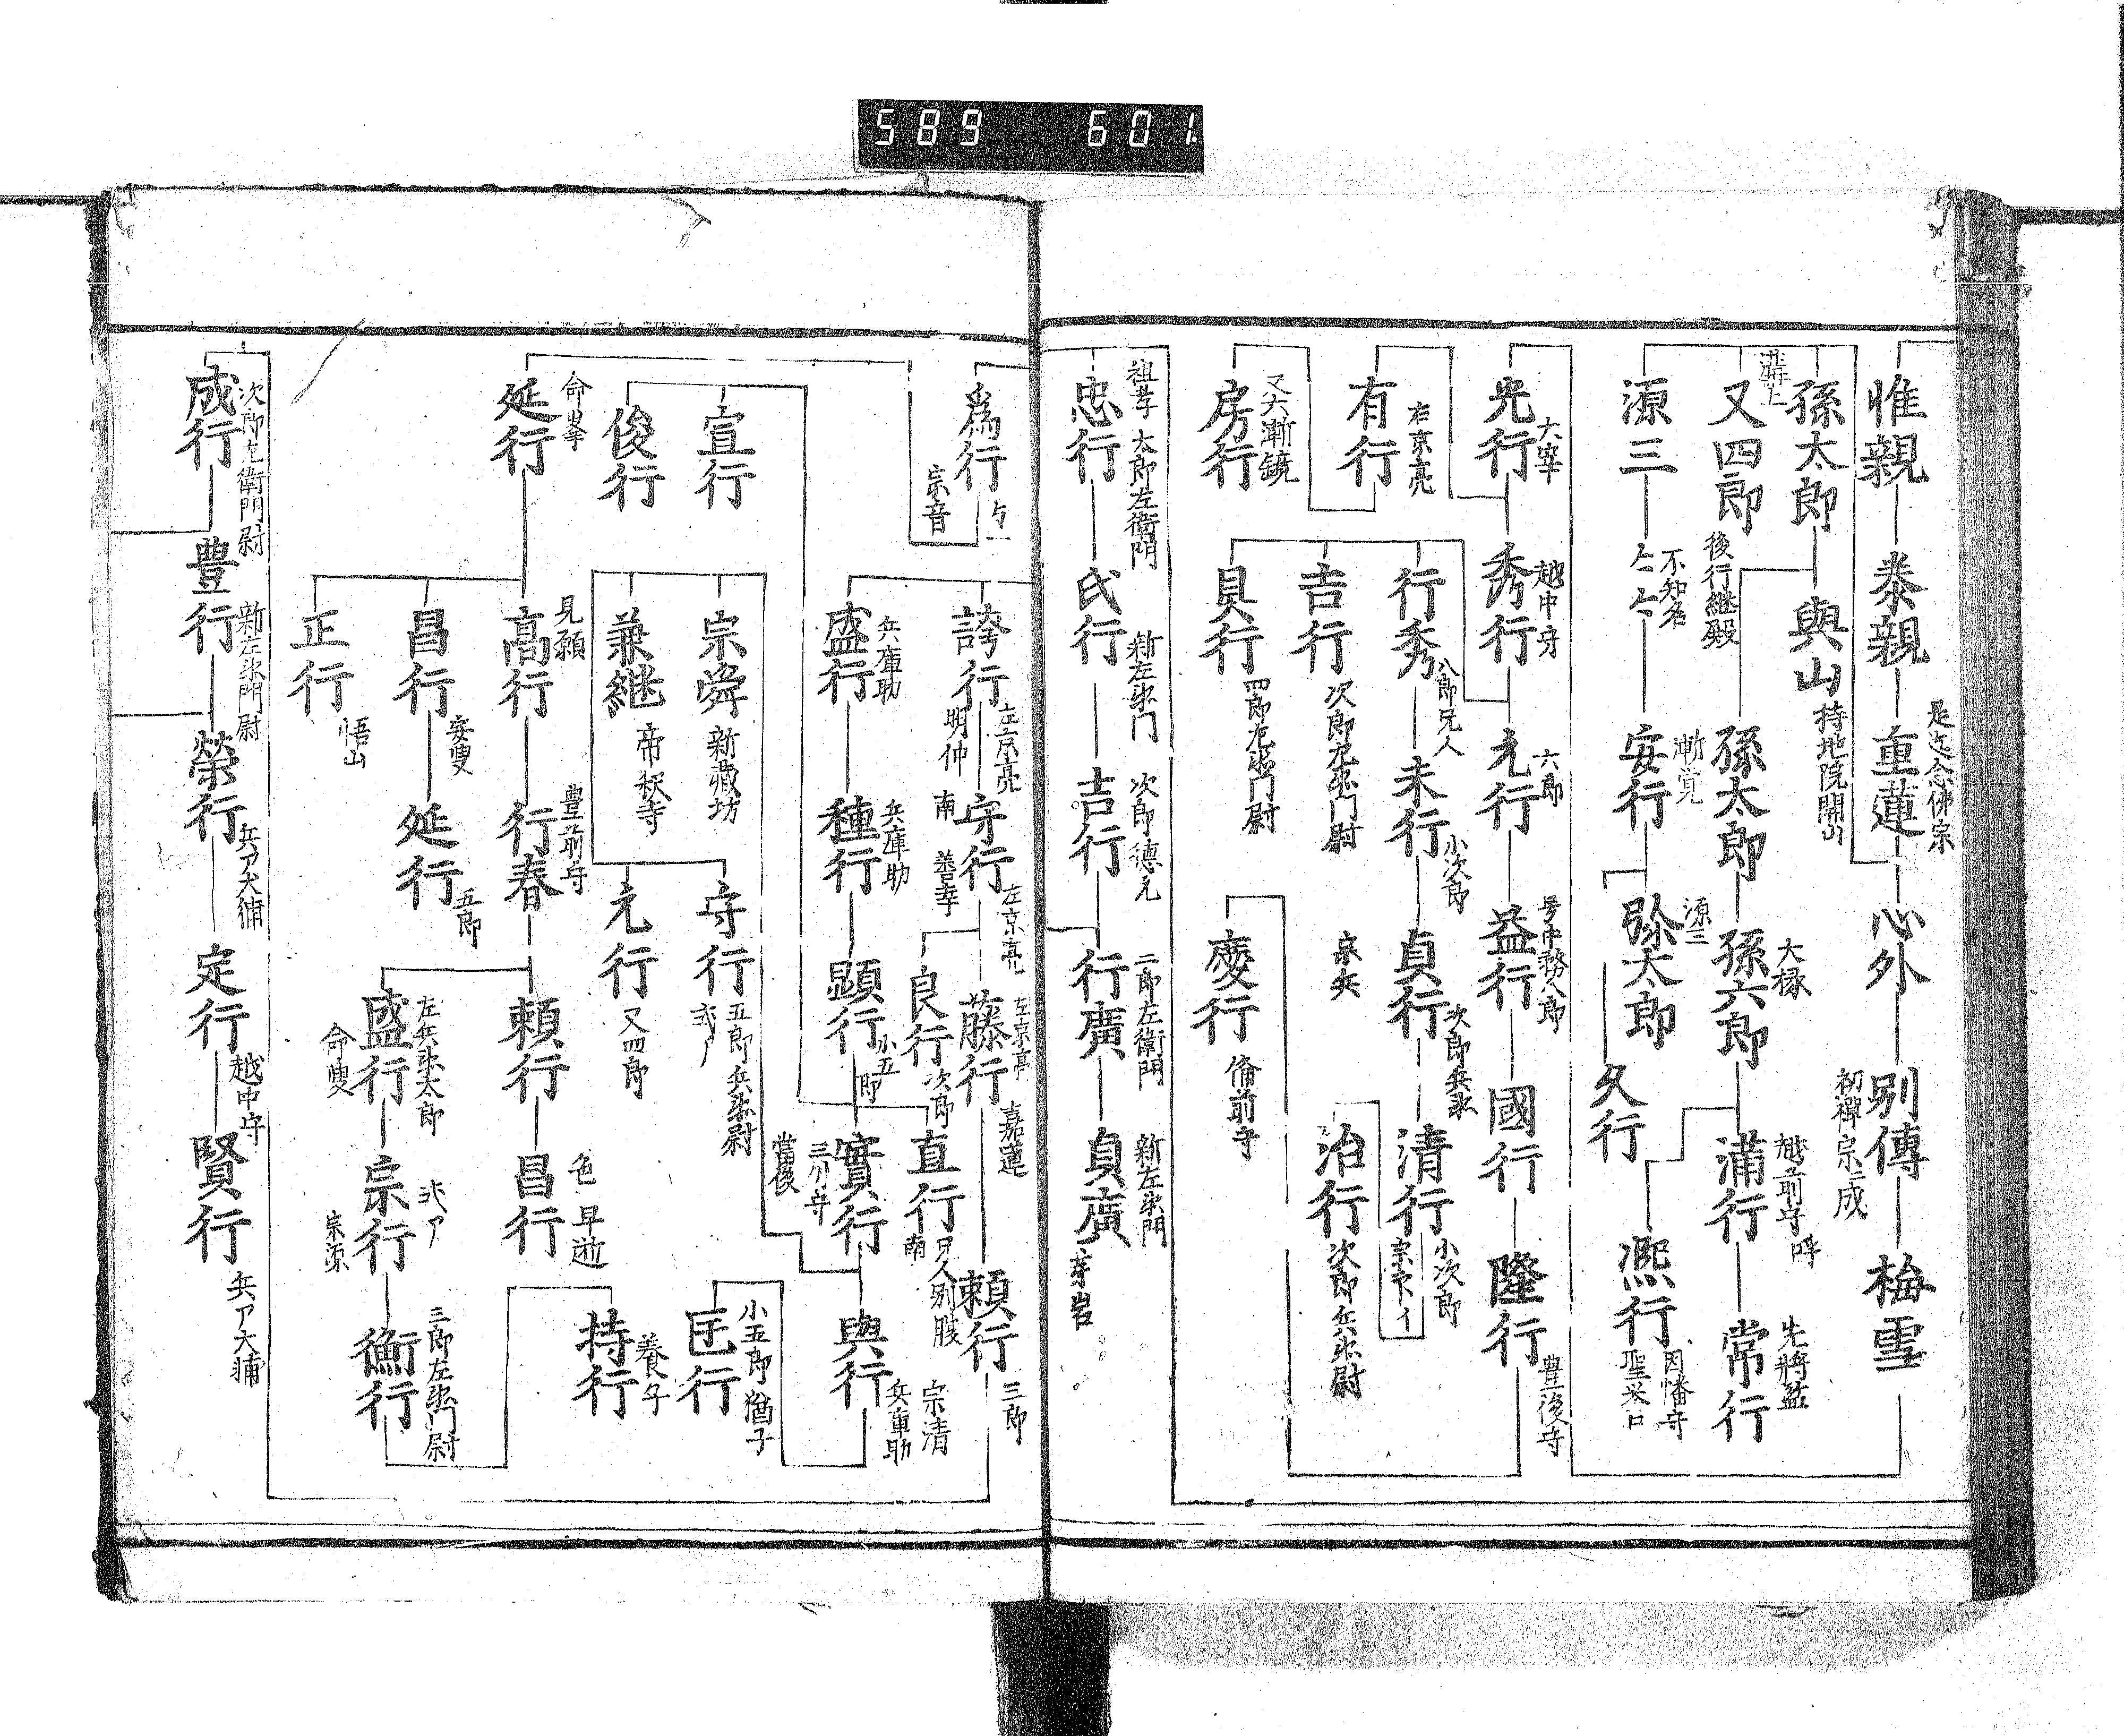 589 601
惟親
泰親
重蓮
是迄念佛宗
心外
別傳
初禪宗成
梅雪
孫太郎
與山
持地院開山
又四郎
後行継殿
孫太郎
孫六郎
大椽
満行
越前守
常行
先將監
源三
不知名
安行
漸覚
弥太郎
源三
久行
凞行
因幡守
光行
大宰
秀行
越中守
元行
六郎
益行
号中務八郎
國行
隆行
豊後守
有行
左京亮
行秀
八郎兄人
未行
小次郎
貞行
次郎兵衛
清行
小次郎
吉行
次郎左衛門尉
宗兵
治行
次郎兵衛尉
房行
又六漸鏡
貝行
四郎左衛門尉
慶行
備前守
忠行
祖孝 太郎左衛門
氏行
新左衛门
吉行
次郎德元
行廣
二郎左衛門
貞廣
新左衛門
爲行
宗音
誇行
左京亮
明仲
守行
左京亮
南 善幸
藤行
左京亭
嘉蓮
頼行
三郎
良行
次郎
直行
兄久別腹
南
盛行
兵庫助
種行
兵庫助
顕行
小五郎
實行
三川守
當後
與行
宗清
兵庫助
匡行
小五郎 猶子
宣行
宗舜
新藏坊
守行
五郎兵衛尉
式ア
俊行
兼継
帝釈寺
元行
又四郎
持行
養子
延行
命叟
高行
見願
行春
豊前守
頼行
昌行
早逝
昌行
安叟
延行
五郎
盛行
左兵衛太郎
命叟
宗行
式ア
宗源
衡行
三郎左衛门尉
正行
悟山
成行
次郎左衛門尉
豊行
新左衛門尉
榮行
兵ア大輔
定行
越中守
賢行
兵ア大輔